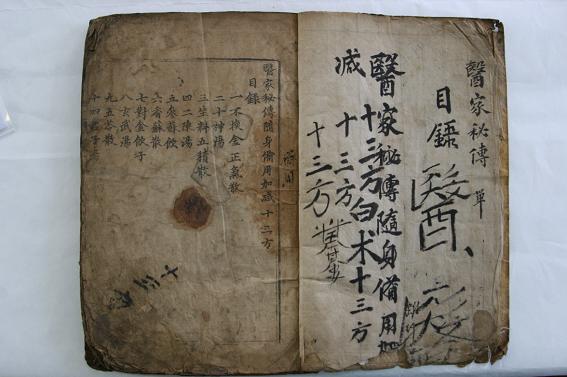 醫家秘傳 單
目錄
醫
醫家秘傳隨身備用加
減 十三方白术十三方
十三方
十三方
醫家秘傳隨身備用加減十三方
目錄
一不換金正氣散
二十神湯
三生料五積散
四二陳湯
五參蘇飲
六香蘇散
七對金飲子
八玄武湯
九五苓散
十四君子湯
十三